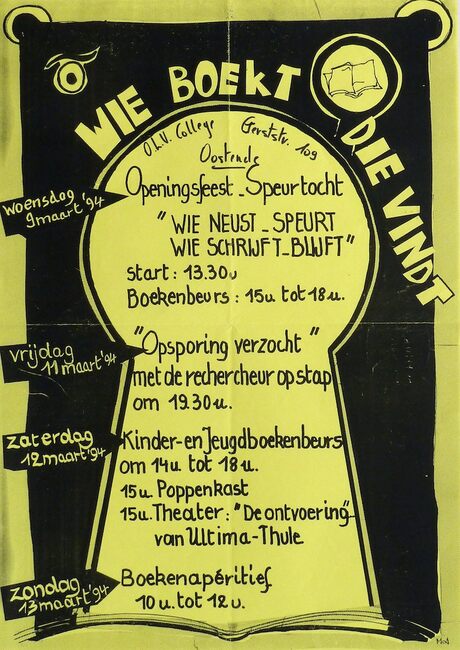 WIE BOEKT
DIE VINDT
O.L.V. College Gerststr. 109
Oostende
woensdag
9 maart '94
Openingsfeest - Speurtocht
"WIE NEUST - SPEURT
WIE SCHRIJFT - BLIJFT"
start : 13.30u
Boekenbeurs : 15u tot 18u.
vrijdag
11 maart '94
"Opsporing verzocht"
met de rechercheur op stap
om 19.30u.
zaterdag
12 maart '94
Kinder- en Jeugdboekenbeurs
om 14u tot 18u.
15u Poppenkast
15u. Theater : "De ontvoering"
van Ultima-Thule
zondag
13 maart '94
Boekenapéritief
10u. tot 12u.